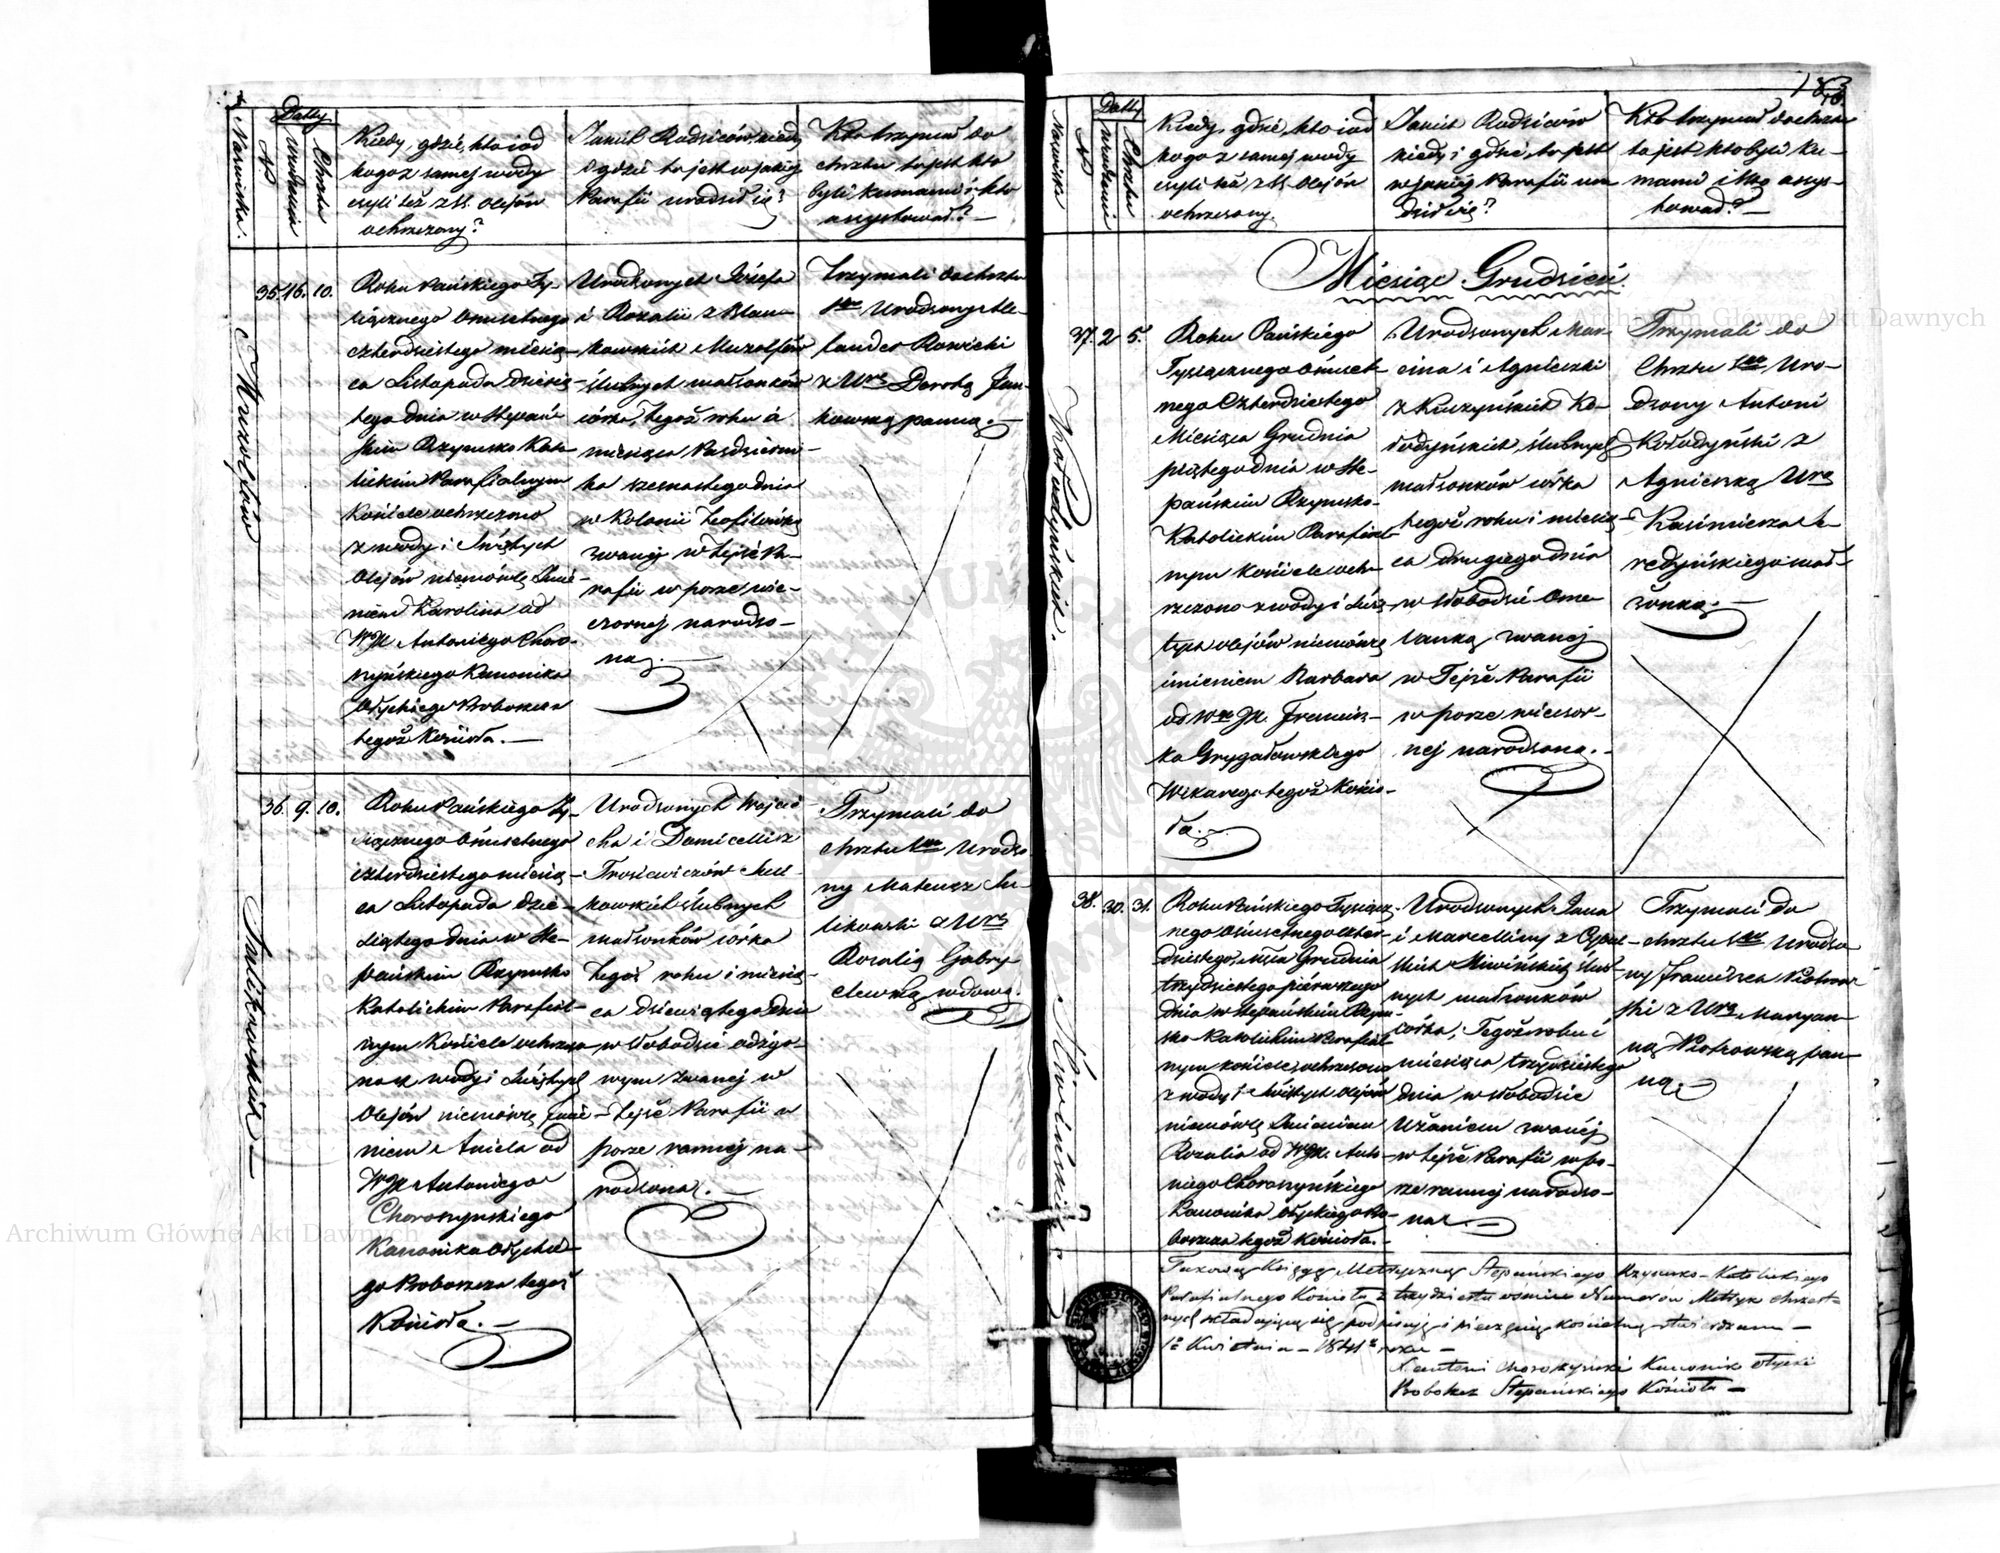 Nazwiska.
N
Datty
urodzenia
Chrztu
Kiedy, gdzie, kto i od
kogo z samej wody
czyli też z śś. olejów
ochrzczony?
Jakich Rodziców, kiedy
i gdzie to jest w jakiej
Parafii urodził się?
Kto trzymał do
chrztu to jest kto
byli kumami i kto
assystował? —
Muzolfów
35. 16. 10.
Roku Pańskiego Ty-
siącznego Ośmsetnego
czterdziestego miesią-
ca Listopada dziesią-
tego dnia w Stepań-
skim Rzymsko Kato-
lickim Parafialnym
Kościele ochrzczono
z wody i Świętych
Olejów niemówlę Imie-
niem Karolina od
WJX Antoniego Choro-
szyńskiego Kanonika
Ołyckiego Proboszcza
tegoż Kościoła. —
Urodzonych Józefa
i Rozalii z
Muzolfów
ślubnych małżonków
córka, tegoż roku i
miesiąca Październi-
ka szesnastego dnia
w Kolonii Teofilówką
zwanej w tejże Pa-
rafii w porze wie-
czornej narodzo-
na. —
Trzymali do chrztu
Sgo Urodzony Ale-
xander Rawicki
z Urą Dorotą Jan-
kowską panną. —
Sulikowskich —
36. 9. 10.
Roku Pańskiego Ty-
siącznego Ośmsetnego
czterdziestego miesią-
ca Listopada dzie-
siątego dnia w Ste-
pańskim Rzymsko
Katolickim Parafial-
nym Kościele ochrzczo-
no z wody i Świętych
Olejów niemówlę Imie-
niem Aniela od
WJX Antoniego
Choroszynskiego
Kanonika Ołyckie-
go Proboszcza tegoż
Kościoła. —
Urodzonych Wojcie-
cha i Domicelli z
Trosiewiczów Suli-
kowskich ślubnych
małżonków córka
tegoż roku i miesią-
ca dziewiątego dnia
w słobodzie
zwanej w
tejże Parafii w
porze rannej na-
rodzona. —
Trzymali do
chrztu Sgo Urodzo-
ny Mateusz Su-
likowski z Urą
Rozalią Gabry-
elewską wdową.
183
Nazwiska
N
Datty
urodzenia
Chrztu
Kiedy, gdzie, kto i od
kogo z samej wody
czyli też z śś. olejów
ochrzczony.
Jakich Rodziców
kiedy i gdzie, to jest
w jakiej Parafii uro-
dził się?
Kto trzymał do chrztu
to jest kto byli ku-
mami i kto assys-
tował? —
Miesiąc Grudzień.
Kołodyńskich.
37. 2. 5.
Roku Pańskiego
Tysiącznego Ośmset-
nego Czterdziestego
Miesiąca Grudnia
piątego dnia w Ste-
pańskim Rzymsko-
Katolickim Parafial-
nym Kościele och-
rzczono z wody i Świę-
tych olejów niemówlę
imieniem Barbara
od Wgo JX. Francisz-
ka Grygałowskiego
Wikarego tegoż Kościo-
ła. —
Urodzonych Mar-
cina i Agnieszki
z Kruszyńskich Ko-
łodyńskich, ślubnych
małżonków córka
tegoż roku i miesią-
ca drugiego dnia
w słobodzie Ome-
lanką zwanej
w Tejże Parafii
w porze wieczor-
nej narodzona. —
Trzymali do
Chrztu Sgo Uro-
dzony Antoni
Kołodyński z
Agnieszką Urą
Kazimierza
mał-
żonką. —
Niwińskich
38. 30. 31.
Roku Pańskiego Tysiącz-
nego Ośmsetnego czter-
dziestego, msca Grudnia
trzydziestego pierwszego
dnia w Stepańskim Rzym-
sko-Katolickim Parafial-
nym kościele, ochrzczono
z wody i Świętych olejów
niemówlę Imieniem
Rozalia od WJX. Anto-
niego Choroszyńskiego
Kanonika Ołyckiego Pro-
boszcza tegoż Kościoła. —
Urodzonych Jana
i Marcelliny z
Niwińskich ślub-
nych małżonków
córka, Tegoż roku i
miesiąca trzydziestego
dnia w słobodzie
Użaniem zwanej
w tejże Parafii w po-
rze rannej narodzo-
na. —
Trzymali do
chrztu Sgo Urodzo-
ny Franciszek Piotrow-
ski z Urą Maryan-
ną Piotrowską pan-
ną. —
Takową Księgę Metryczną Stepańskiego Rzymsko-Katolickiego
Parafialnego Kościoła z trzydziestu ośmiu Numerów Metryk chrzest-
nych składającą się, podpisuję i pieczęcią kościelną stwierdzam —
1o Kwietnia — 1841o roku —
X Antoni Choroszyński Kanonik Ołycki
Proboszcz Stepańskiego Kościoła —
Archiwum Główne Akt Dawnych
Archiwum Główne Akt Dawnych